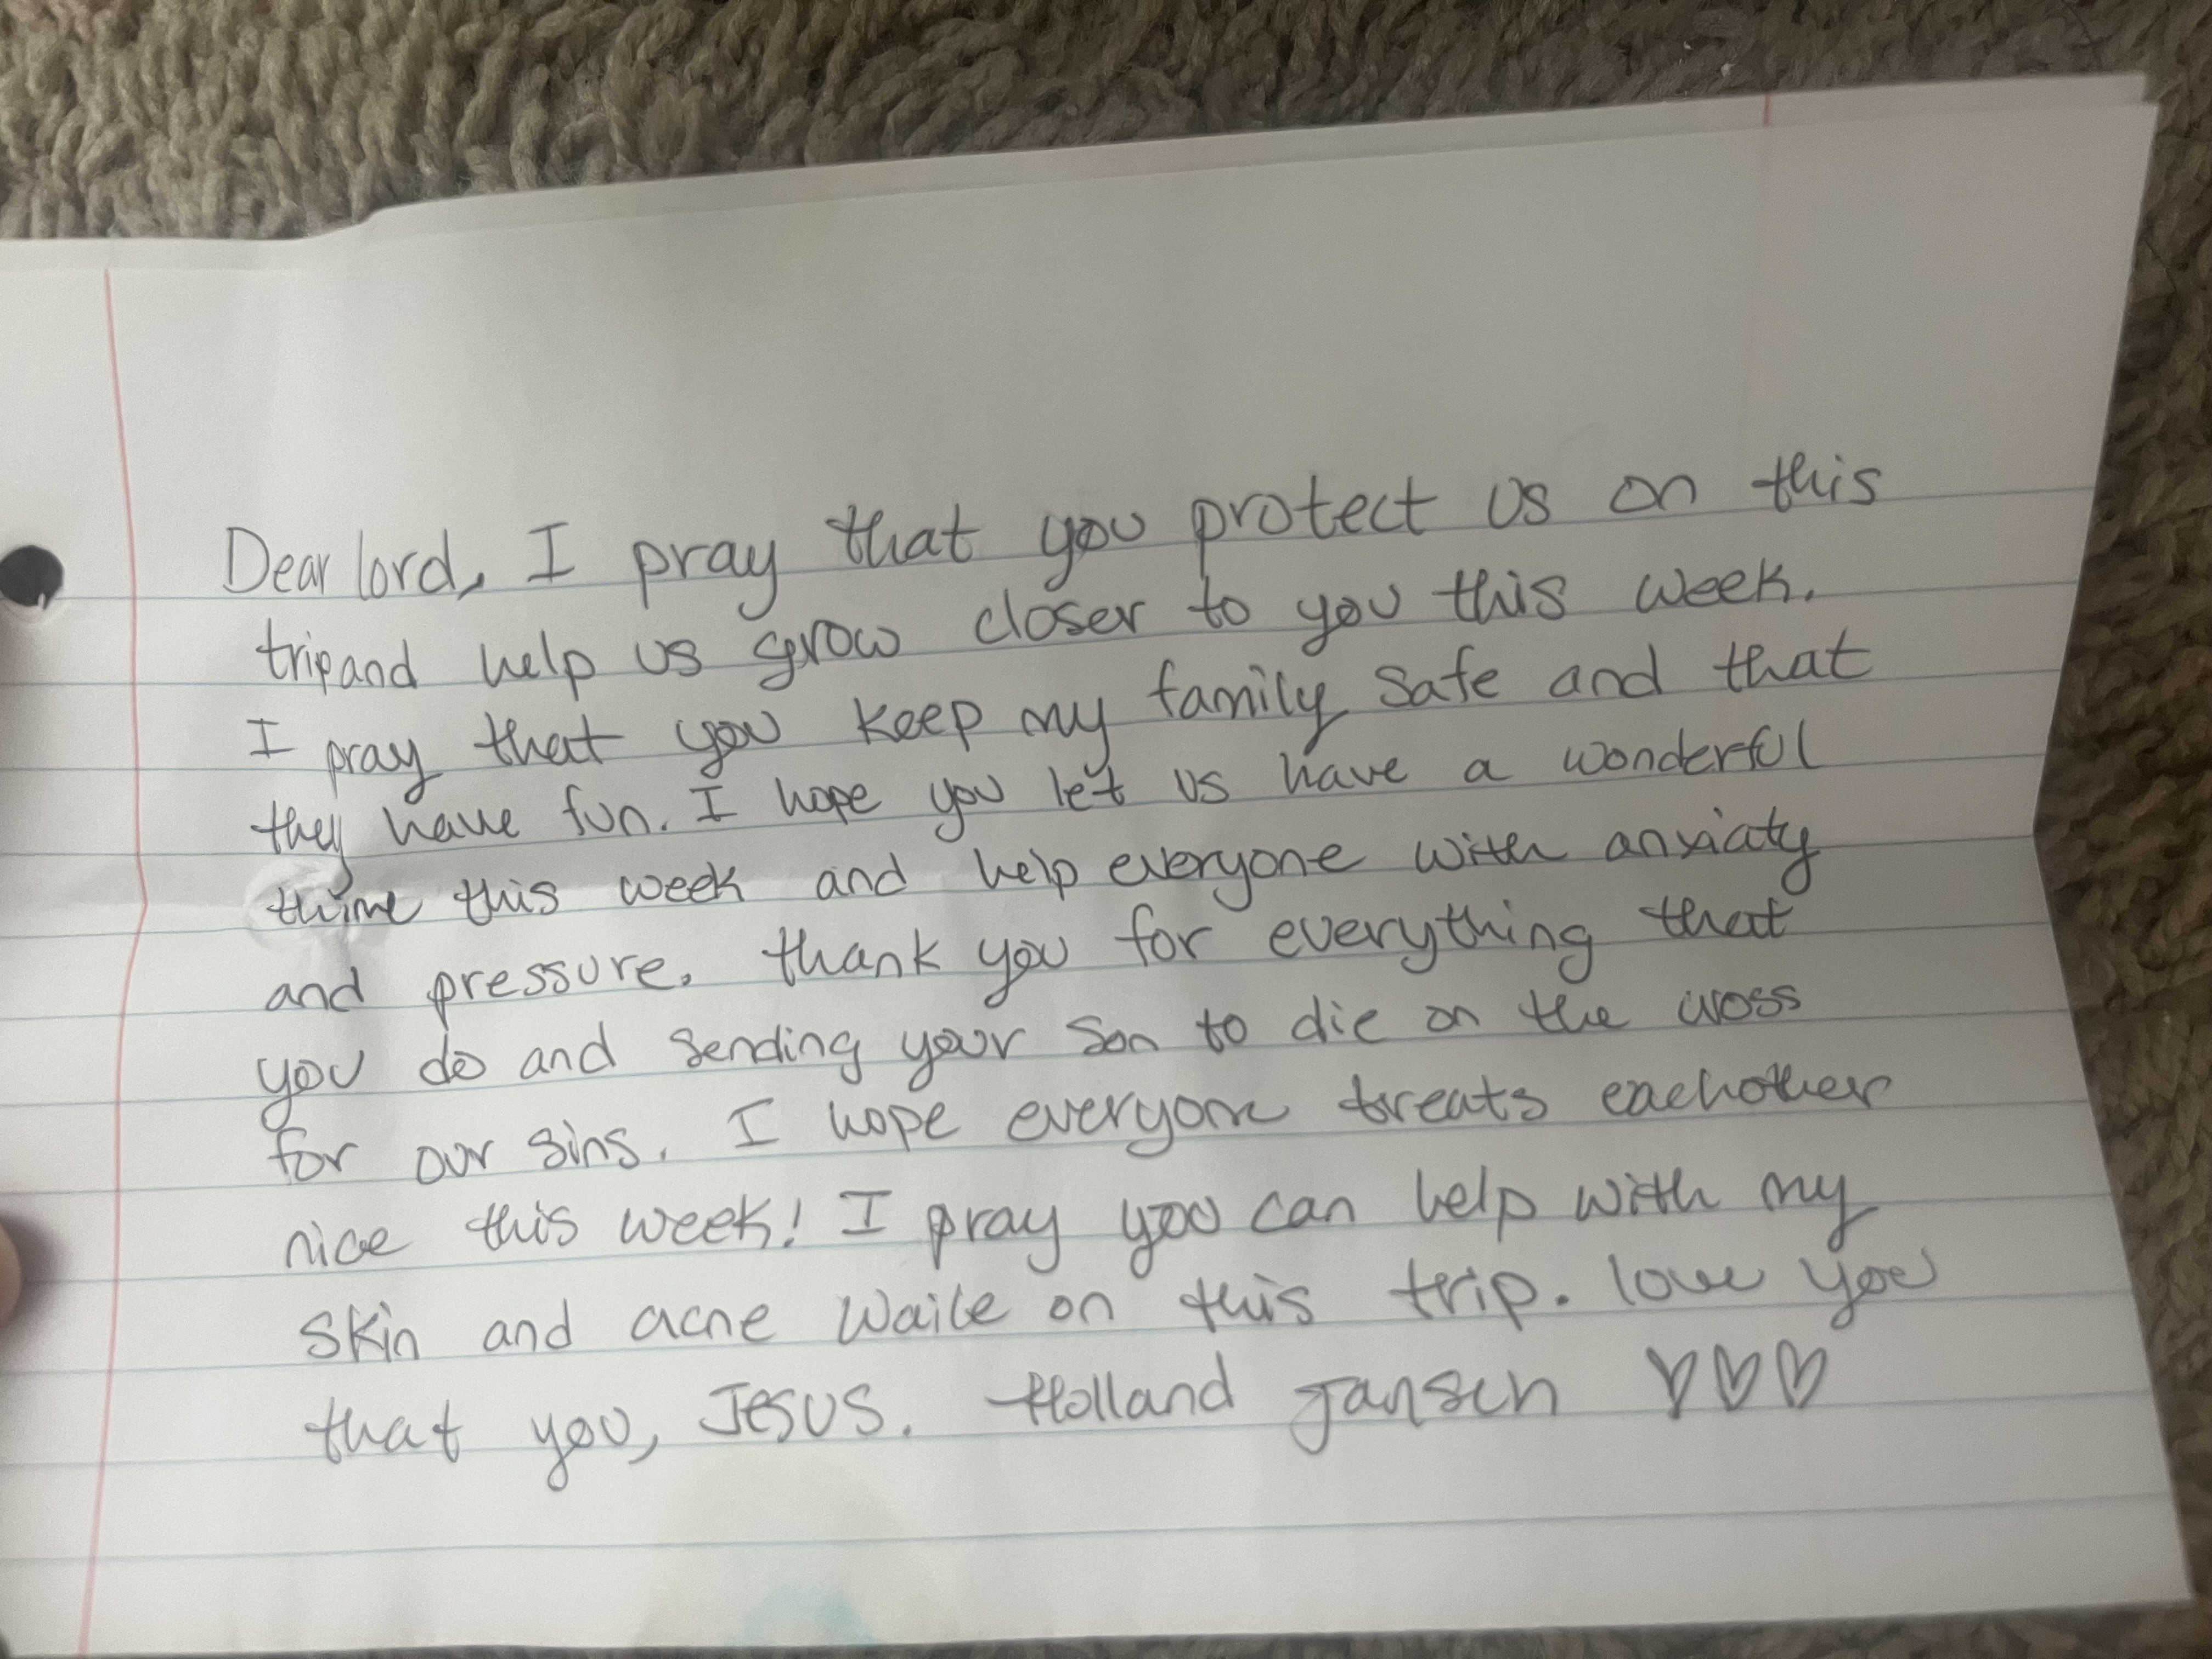 Dear lord, I pray that you protect us on this
trip and help us grow closer to you this week.
I pray that you keep my family safe and that
they have fun. I hope you let us have a wonderful
thime this week and help everyone with anxiaty
and pressure. thank you for everything that
you do and sending your son to die on the cross
for our sins. I hope everyone treats eachother
nice this week! I pray you can help with my
skin and acne waile on this trip. love you
that you, Jesus. Holland Jansen ♡♡♡